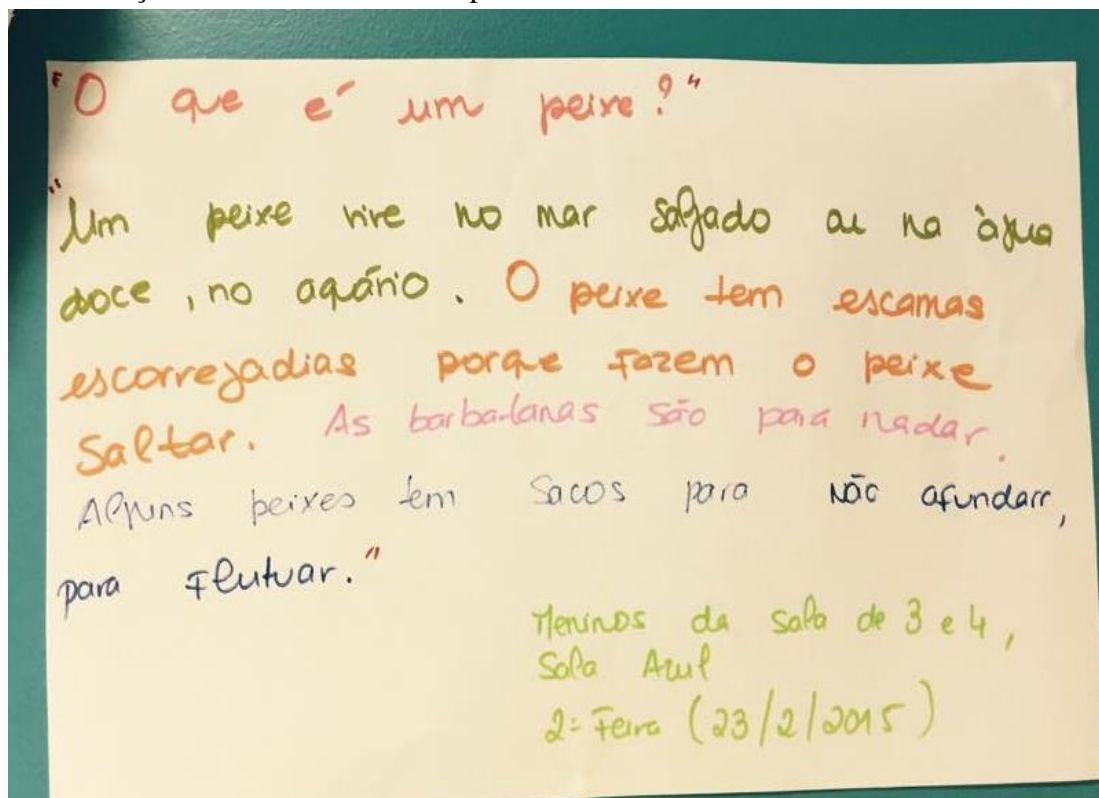 "O que é um peixe?"
"Um peixe vive no mar salgado ou na àgua
doce, no aquário. O peixe tem escamas
escorregadias porque fazem o peixe
saltar. As barbatanas são para nadar.
Alguns peixes tem sacos para não afundarr,
para flutuar."
Meninos da sala de 3 e 4,
Sala Azul
2ª Feira (23/2/2015)